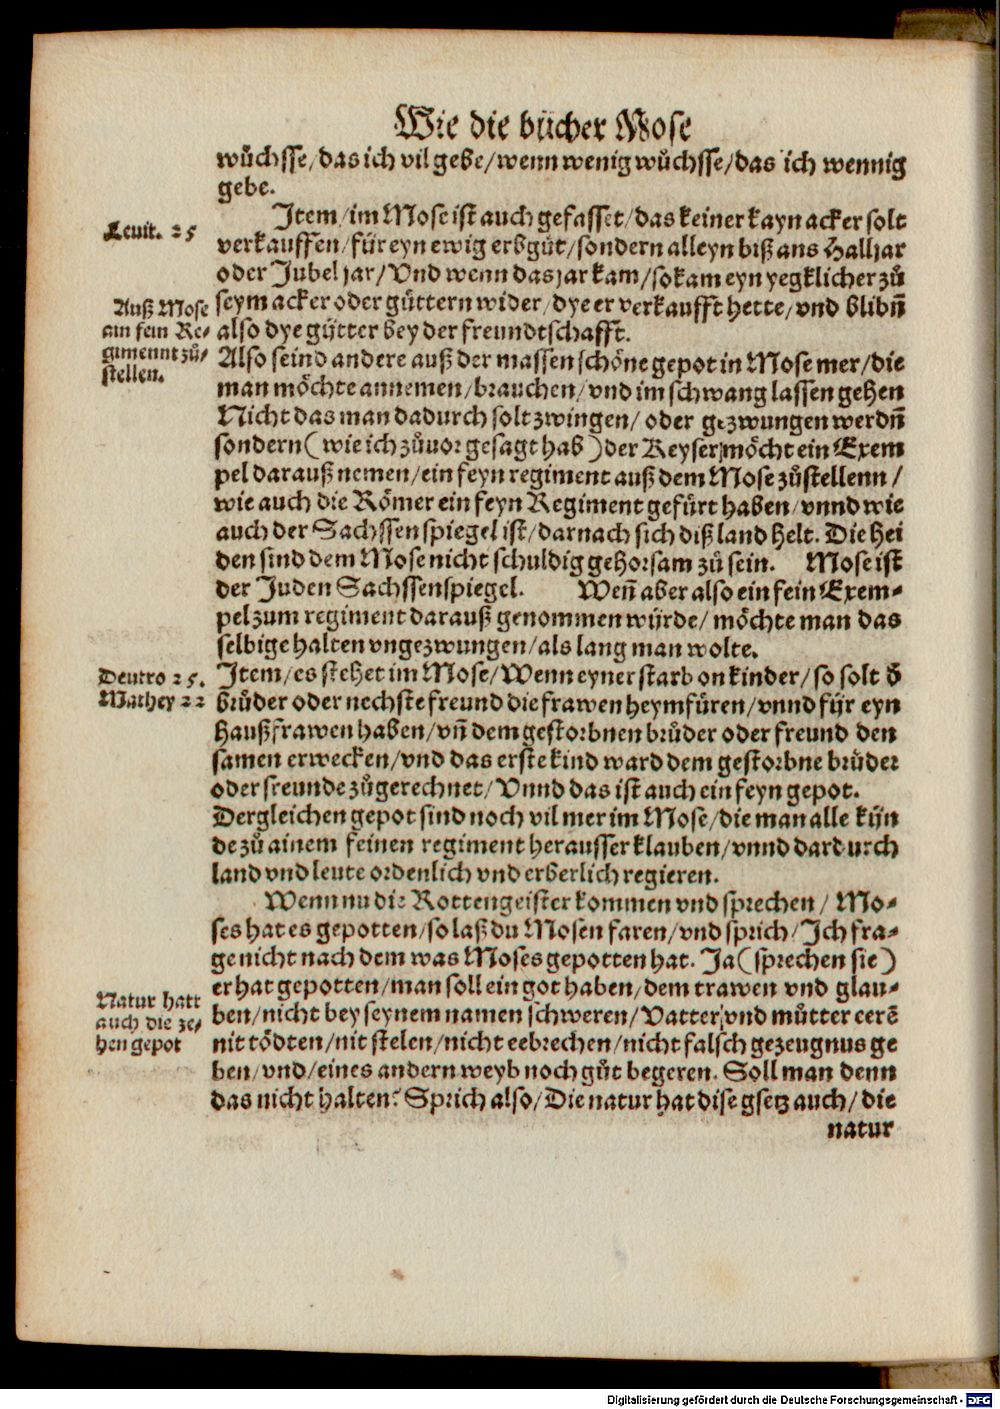 Wie die bücher Mose
wůchsse/das ich vil gebe/wenn wenig wůchsse/das ich wennig
gebe.
Item/im Mose ist auch gefasset/das keiner kayn acker solt
Levit. 25
verkauffen/für eyn ewig erbgůt/sondern alleyn biß ans Halljar
oder Jubel jar/Vnd wenn das jar kam/so kam eyn yegklicher zů
Auß Mose
ain fein Re-
gimennt zů-
stellen.
seym acker oder gůttern wider/dye er verkaufft hette/vnd blibñ
also dye gütter bey der freundtschafft.
Also seind andere auß der massen schöne gepot in Mose mer/die
man möchte annemen/brauchen/vnd im schwang lassen gehen
Nicht das man dadurch solt zwingen/ oder gezwungen werdñ
sondern (wie ich zůuor gesagt hab) der Keyser möcht ein Exem
pel darauß nemen/ein feyn regiment auß dem Mose zůstellenn/
wie auch die Römer ein feyn Regiment gefürt haben/vnnd wie
auch der Sachssenspiegel ist/darnach sich diß land helt. Die Hei
den sind dem Mose nicht schuldig gehorsam zů sein. Mose ist
der Juden Sachssenspiegel. Weñ aber also ein fein Exem-
pel zum regiment darauß genommen würde/ möchte man das
selbige halten vngezwungen/als lang man wolte.
Deutro 25.
Mathey 22
Item/es stehet im Mose/Wenn eyner starb on kinder/so solt ð
brůder oder nechste freund die frawen heymfüren/vnnd für eyn
Haußfrawen haben/vñ dem gestorbnen brůder oder freund den
samen erwecken/vnd das erste kind ward dem gestorbne brůder
oder freunde zůgerechnet/Vnnd das ist auch ein feyn gepot.
Dergleichen gepot sind noch vil mer im Mose/die man alle kün
de zů ainem feinen regiment herausser klauben/vnnd dardurch
land vnd leute ordenlich vnd erberlich regieren.
Wenn nu die Rottengeister kommen vnd sprechen/ Mo-
ses hat es gepotten/so laß du Mosen faren/vnd sprich/Ich fra-
ge nicht nach dem was Moses gepotten hat. Ja (sprechen sie)
Natur hatt
auch die ze-
hen gepot
er hat gepotten/man soll ein got haben/dem trawen vnd glau-
ben/nicht bey seynem namen schweren/Vatter vnd můtter eerē
nit tödten/nit stelen/nicht eebrechen/nicht falsch gezeugnus ge
ben/vnd/eines andern weyb noch gůt begeren. Soll man denn
das nicht halten? Sprich also/Die natur hat dise gsetz auch/die
natur
Digitalisierung gefördert durch die Deutsche Forschungsgemeinschaft - DFG